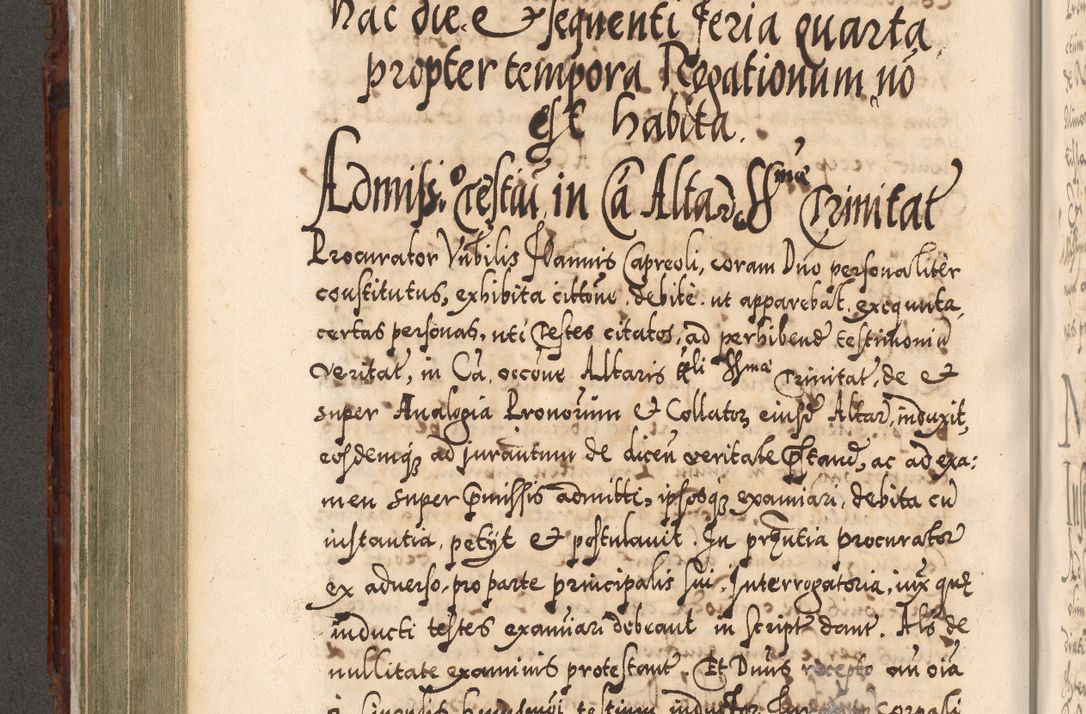 hac die. e & sequenti feria quarta
propter tempora Rogationum nō
est habita.
Admiss.º Testiū in Cā Altar. SSmæ Trinitat
Procurator Nūbilis Joannis Capreoli, coram Dno personaliter
constitutus, exhibita cittōne debitè ut apparebat exequuta,
certas personas, uti Testes citatos, ad perhibend testimoniū
veritat, in Cā occōne Altaris SSmæ Trinitat, de &
super Analogia Pronorum & Collator eiusd Altar, induxit,
eosdemq; ad jurantum de dicen veritate pstand, ac ad exa:
men super pmissis admitti, ipsosq; examinari, debita cū
instantia, petijt & postulavit. In præntia procurator
ex adverso, pro parte principalis sui, Interrogatoria, iux quę
inducti testes examinari debeant in script dant. Als de
nullitate examinis protestant. Et Dnus recepto an oia
testium Corpali